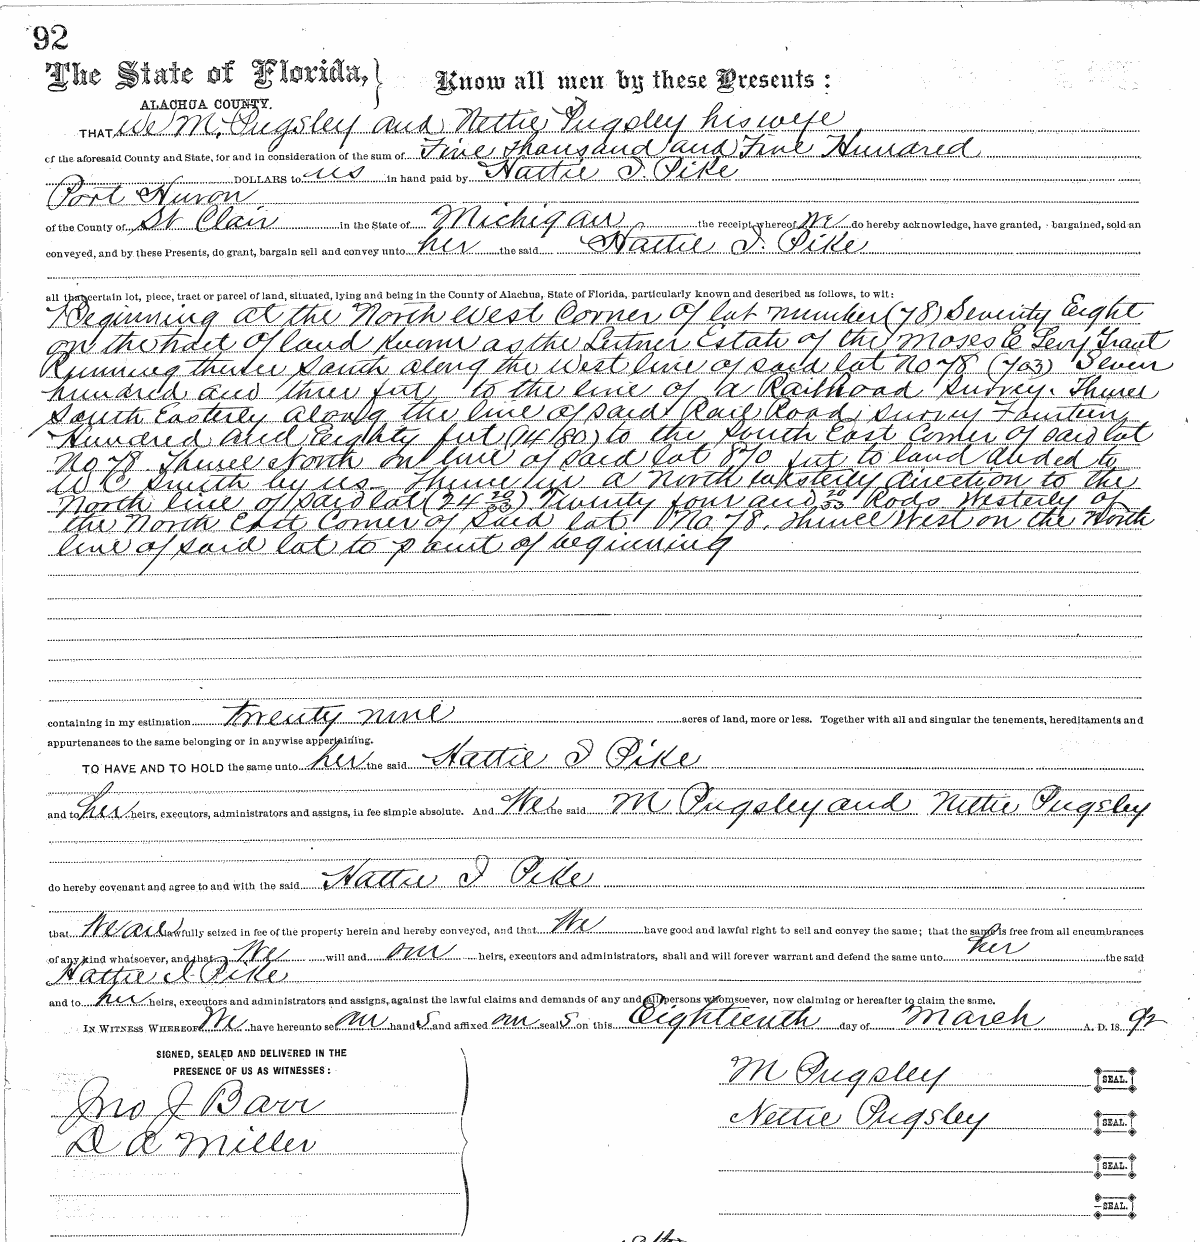 92
The State of Florida, } Know all men by these Presents :
ALACHUA COUNTY.
THAT We M. Pugsley and Nettie Pugsley his wife
of the aforesaid County and State, for and in consideration of the sum of Five thousand and Five Hundred
DOLLARS to us in hand paid by Hattie I. Pike
Port Huron
of the County of St Clair in the State of Michigan the receipt whereof We do hereby acknowledge, have granted, bargained, sold an
conveyed, and by these Presents, do grant, bargain sell and convey unto her the said Hattie I. Pike
all that certain lot, piece, tract or parcel of land, situated, lying and being in the County of Alachua, State of Florida, particularly known and described as follows, to wit:
Beginning at the North West Corner of lot number (78) Seventy Eight
on the tract of land known as the Leitner Estate of the Moses E Levy Grant
Running thence South along the West line of said lot No 78 (703) Seven
hundred and three feet to the line of a Railroad Survey. Thence
South Easterly along the line of said Rail Road survey Fourteen
Hundred and Eighty feet (1480) to the South East Corner of said lot
No 78. Thence North on line of said lot 870 feet to land deeded to
W C Smith by us. Thence in a North Westerly direction to the
North line of said lot (24 20/33) Twenty four and 20/33 Rods Westerly of
the North East Corner of said lot No 78. Thence West on the North
line of said lot to point of beginning
containing in my estimation twenty nine acres of land, more or less. Together with all and singular the tenements, hereditaments and
appurtenances to the same belonging or in anywise appertaining.
TO HAVE AND TO HOLD the same unto her the said Hattie I Pike
and to her heirs, executors, administrators and assigns, in fee simple absolute. And We the said M Pugsley and Nettie Pugsley
do hereby covenant and agree to and with the said Hattie I Pike
that We are lawfully seized in fee of the property herein and hereby conveyed, and that We have good and lawful right to sell and convey the same; that the same is free from all encumbrances
of any kind whatsoever, and that We will and our heirs, executors and administrators, shall and will forever warrant and defend the same unto her the said
Hattie I. Pike
and to her heirs, executors and administrators and assigns, against the lawful claims and demands of any and all persons whomsoever, now claiming or hereafter to claim the same.
IN WITNESS WHEREOF We have hereunto set our hands and affixed our seals on this Eighteenth day of March A. D. 18 92
SIGNED, SEALED AND DELIVERED IN THE
PRESENCE OF US AS WITNESSES :
Jno J Barr
D A Miller
M Pugsley SEAL.
Nettie Pugsley SEAL.
SEAL.
SEAL.